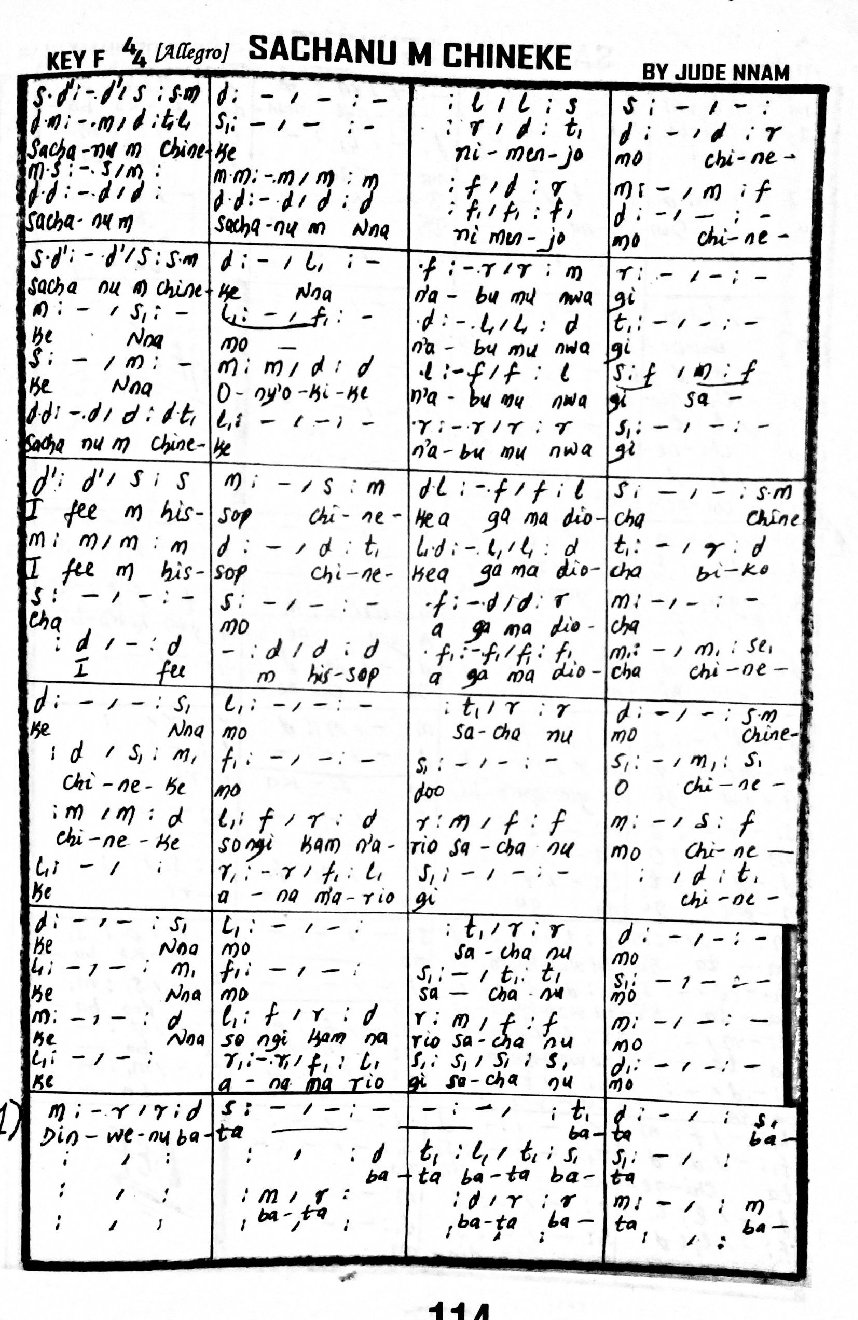 KEY F 4/4 [Allegro] SACHANU M CHINEKE BY JUDE NNAM
s.d':-.d'/s :s.m | d: - / - : - | : l / l : s | s : - / - :
d.m:-.m/d:t,l, | s,: - / - : - | : r / d : t, | d : - / d : r
Sacha-nu m Chine- | ke | ni-men-jo | mo chi-ne-
m.s:-.s/m: | m.m:-.m/m:m | : f / d : r | m: - / m : f
d.d:-.d/d: | d.d:-.d/d:d | : f, / f, : f, | d : - / - : -
Sacha-num | Sacha-nu m Nna | ni men-jo | mo chi-ne-
s.d':-d'/s:s.m | d : - / l, : - | .f :-.r/r : m | r: - / - : -
sacha nu m chine- | ke Nna | n'a-bu mu nwa | gi
m: - / s,: - | l,: - / f,: - | .d:-.l,/l, : d | t,: - / - : -
ke Nna | mo — | n'a-bu mu nwa | gi
s: - / m: - | m: m/d : d | .l:-f/f : l | s: f / m : f
ke Nna | O-ny'o-ki-ke | n'a-bu mu nwa | gi sa -
d.d:-.d/d:d.t, | l,: - / - : - | .r:-r/r : r | s,: - / - : -
sacha nu m chine- | ke | n'a-bu mu nwa | gi
d': d'/s : s | m: - / s : m | d.l:-.f/f:l | s: - / - : s.m
I fee m his- | sop chi-ne- | kea ga ma dio- | cha chine
m: m/m : m | d: - / d : t, | l,.d:-.l,/l,: d | t,: - / r : d
I fee m his- | sop chi-ne- | kea ga ma dio- | cha bi-ko
s: - / - : - | s: - / - : - | .f:-d/d: r | m: - / - : -
cha | mo | a ga ma dio- | cha
: d / - : d | - : d / d : d | .f,:-f,/f,: f, | m,: - / m,: se,
I fee | m his-sop | a ga ma dio- | cha chi-ne-
d: - / - : s, | l,: - / - : - | : t,/r : r | d: - / - : s.m
ke Nna | mo | sa-cha nu | mo chine-
: d / s,: m, | f,: - / - : - | s,: - / - : - | s,: - / m,: s,
chi-ne-ke | mo | doo | O chi-ne-
: m / m : d | l,: f / r : d | r: m / f : f | m: - / s : f
chi-ne-ke | songi kam n'a- | rio sa-cha nu | mo chi-ne—
l,: - / : | r,:-r/f,: l, | s,: - / - : - | : / d : t,
ke | a - na m'a-rio | gi | chi-ne-
d: - / - : s, | l,: - / - : - | : t,/r : r | d: - / - : -
ke Nna | mo | sa-cha nu | mo
l,: - / - : m, | f,: - / - : - | s,: - / t,: t, | s,: - / - : -
ke Nna | mo | sa — cha nu | mo
m: - / - : d | l,: f / r : d | r: m / f : f | m: - / - : -
ke Nna | so ngi kam na | rio sa-cha nu | mo
l,: - / - : | r,:-.r,/f,: l, | s,: s,/s,: s, | d,: - / - : -
ke | a - na ma rio | gi sa-cha nu | mo
1) m:-.r/r:d | s: - / - : - | - : - / : t, | d: - / : s,
Din-we-nu ba- | ta ——— | ——— ba- | ta ba-
: / : | : / : d | t,: l,/t,: s, | s,: - / :
ba- | ta ba-ta ba- | ta
: / : | : m / r : | : d / r : r | m: - / : m
ba-ta | ba-ta ba- | ta ba-
: / : | : / : | : / : | : / :
114